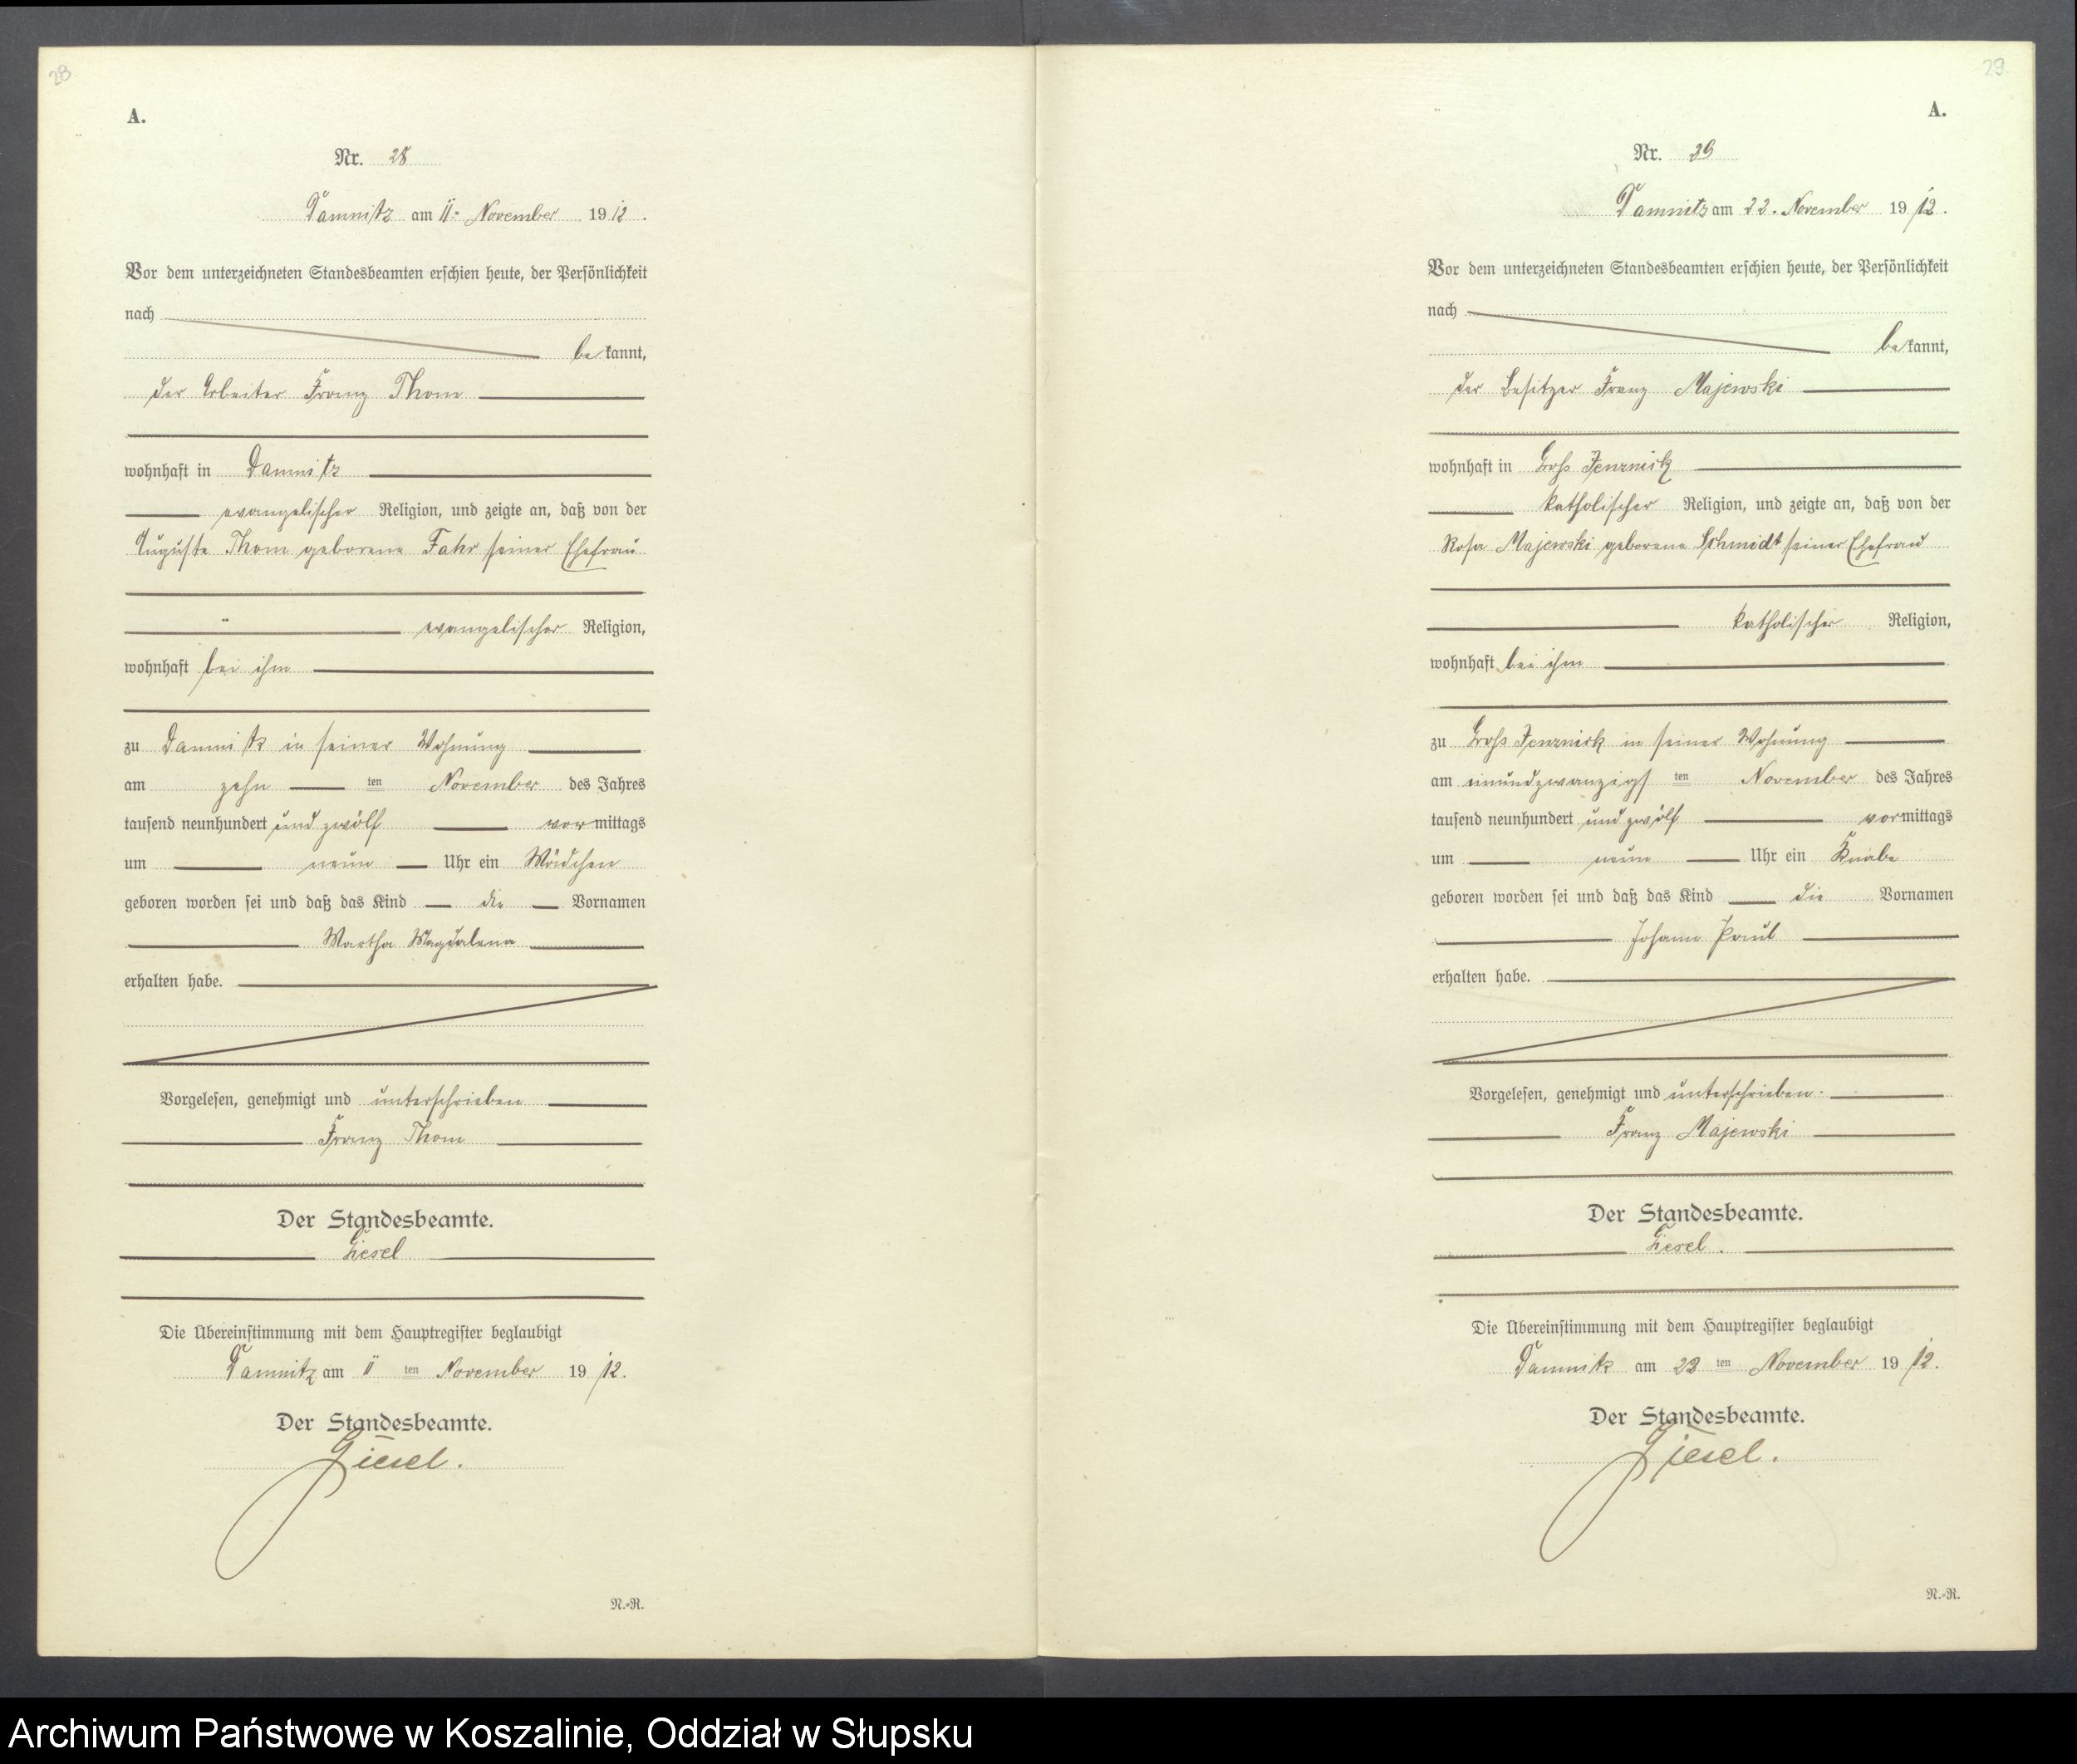 28
A.
Nr. 28
Damnitz am 11. November 1912.
Vor dem unterzeichneten Standesbeamten erschien heute, der Persönlichkeit
nach
bekannt,
der Arbeiter Franz Thom
wohnhaft in Damnitz
evangelischer Religion, und zeigte an, daß von der
Auguste Thom geborene Fahr seiner Ehefrau
evangelischer Religion,
wohnhaft bei ihm
zu Damnitz in seiner Wohnung
am zehn ten November des Jahres
tausend neunhundert und zwölf vormittags
um neun Uhr ein Mädchen
geboren worden sei und daß das Kind die Vornamen
Martha Magdalena
erhalten habe.
Vorgelesen, genehmigt und unterschrieben
Franz Thom
Der Standesbeamte.
Giesel
Die Übereinstimmung mit dem Hauptregister beglaubigt
Damnitz am 11 ten November 1912.
Der Standesbeamte.
Giesel.
N.=R.
29.
A.
Nr. 29
Damnitz am 22. November 1912.
Vor dem unterzeichneten Standesbeamten erschien heute, der Persönlichkeit
nach
bekannt,
der Besitzer Franz Majewski
wohnhaft in Groß Jenznick
katholischer Religion, und zeigte an, daß von der
Rosa Majewski geborene Schmidt seiner Ehefrau
katholischer Religion,
wohnhaft bei ihm
zu Groß Jenznick in seiner Wohnung
am einundzwanzigsten November des Jahres
tausend neunhundert und zwölf vormittags
um neun Uhr ein Knabe
geboren worden sei und daß das Kind die Vornamen
Johann Paul
erhalten habe.
Vorgelesen, genehmigt und unterschrieben.
Franz Majewski
Der Standesbeamte.
Giesel.
Die Übereinstimmung mit dem Hauptregister beglaubigt
Damnitz am 22 ten November 1912.
Der Standesbeamte.
Giesel.
N.=R.
Archiwum Państwowe w Koszalinie, Oddział w Słupsku